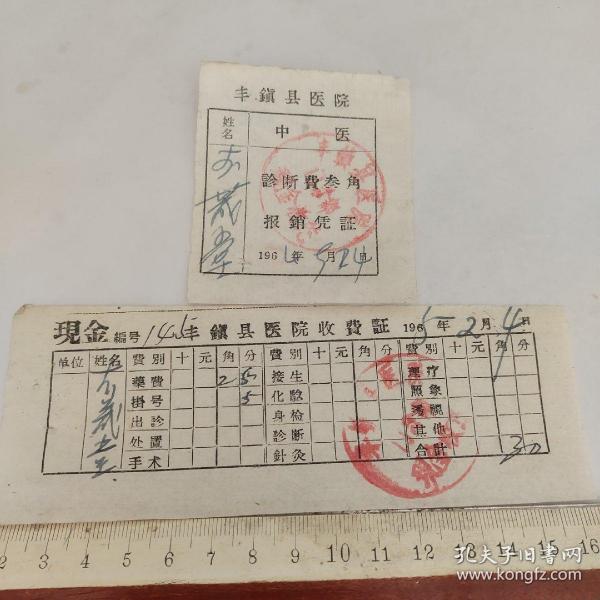 丰鎭县医院
姓名 中医
診断費叁角
报銷凭証
1964年9月24日
現金 編号 145 丰鎭县医院收費証 1965年2月4日
单位 姓名 費別 十 元 角 分 費別 十 元 角 分 費別 十 元 角 分
藥費 2 5 接生 理疗
掛号 5 化驗 照象
出診 身检 透視
处置 診断 其他
手术 針灸 合計 30
2 3 4 5 6 7 8 9 10 11 12 13 14 15 16
孔夫子旧书网
www.kongfz.com